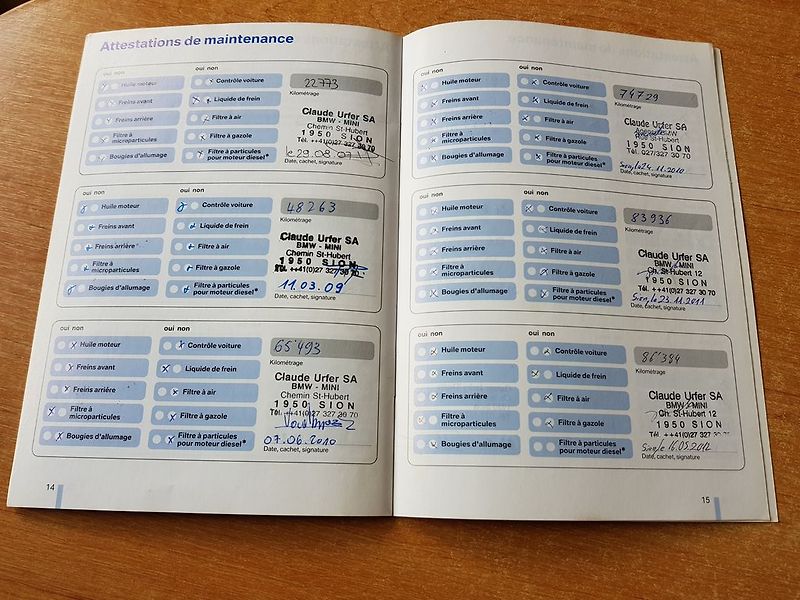 Attestations de maintenance
oui non
oui non
Huile moteur
Contrôle voiture
22773
Kilométrage
Freins avant
Liquide de frein
Freins arrière
Filtre à air
Filtre à
microparticules
Filtre à gazole
Bougies d'allumage
Filtre à particules
pour moteur diesel*
Claude Urfer SA
BMW - MINI
Chemin St-Hubert
1950 SION
Tél. ++41(0)27 327 30 70
Date, cachet, signature
oui non
oui non
Huile moteur
Contrôle voiture
48263
Kilométrage
Freins avant
Liquide de frein
Freins arrière
Filtre à air
Filtre à
microparticules
Filtre à gazole
Bougies d'allumage
Filtre à particules
pour moteur diesel*
Claude Urfer SA
BMW - MINI
Chemin St-Hubert
1950 SION
Tél. ++41(0)27 327 30 70
11.03.09
Date, cachet, signature
oui non
oui non
Huile moteur
Contrôle voiture
65'493
Kilométrage
Freins avant
Liquide de frein
Freins arrière
Filtre à air
Filtre à
microparticules
Filtre à gazole
Bougies d'allumage
Filtre à particules
pour moteur diesel*
Claude Urfer SA
BMW - MINI
Chemin St-Hubert
1950 SION
07.06.2010
Date, cachet, signature
14
oui non
oui non
Huile moteur
Contrôle voiture
74729
Kilométrage
Freins avant
Liquide de frein
Freins arrière
Filtre à air
Filtre à
microparticules
Filtre à gazole
Bougies d'allumage
Filtre à particules
pour moteur diesel*
Claude Urfer SA
1950 SION
Tél. 027/327 30 70
Sion, le 24.11.2010
Date, cachet, signature
oui non
oui non
Huile moteur
Contrôle voiture
83936
Kilométrage
Freins avant
Liquide de frein
Freins arrière
Filtre à air
Filtre à
microparticules
Filtre à gazole
Bougies d'allumage
Filtre à particules
pour moteur diesel*
Claude Urfer SA
BMW - MINI
Ch. St-Hubert 12
1950 SION
Tél. ++41(0)27 327 30 70
Sion, le 23.11.2011
Date, cachet, signature
oui non
oui non
Huile moteur
Contrôle voiture
86'384
Kilométrage
Freins avant
Liquide de frein
Freins arrière
Filtre à air
Filtre à
microparticules
Filtre à gazole
Bougies d'allumage
Filtre à particules
pour moteur diesel*
Claude Urfer SA
BMW - MINI
Ch. St-Hubert 12
1950 SION
Sion, le 16.05.2012
Date, cachet, signature
15